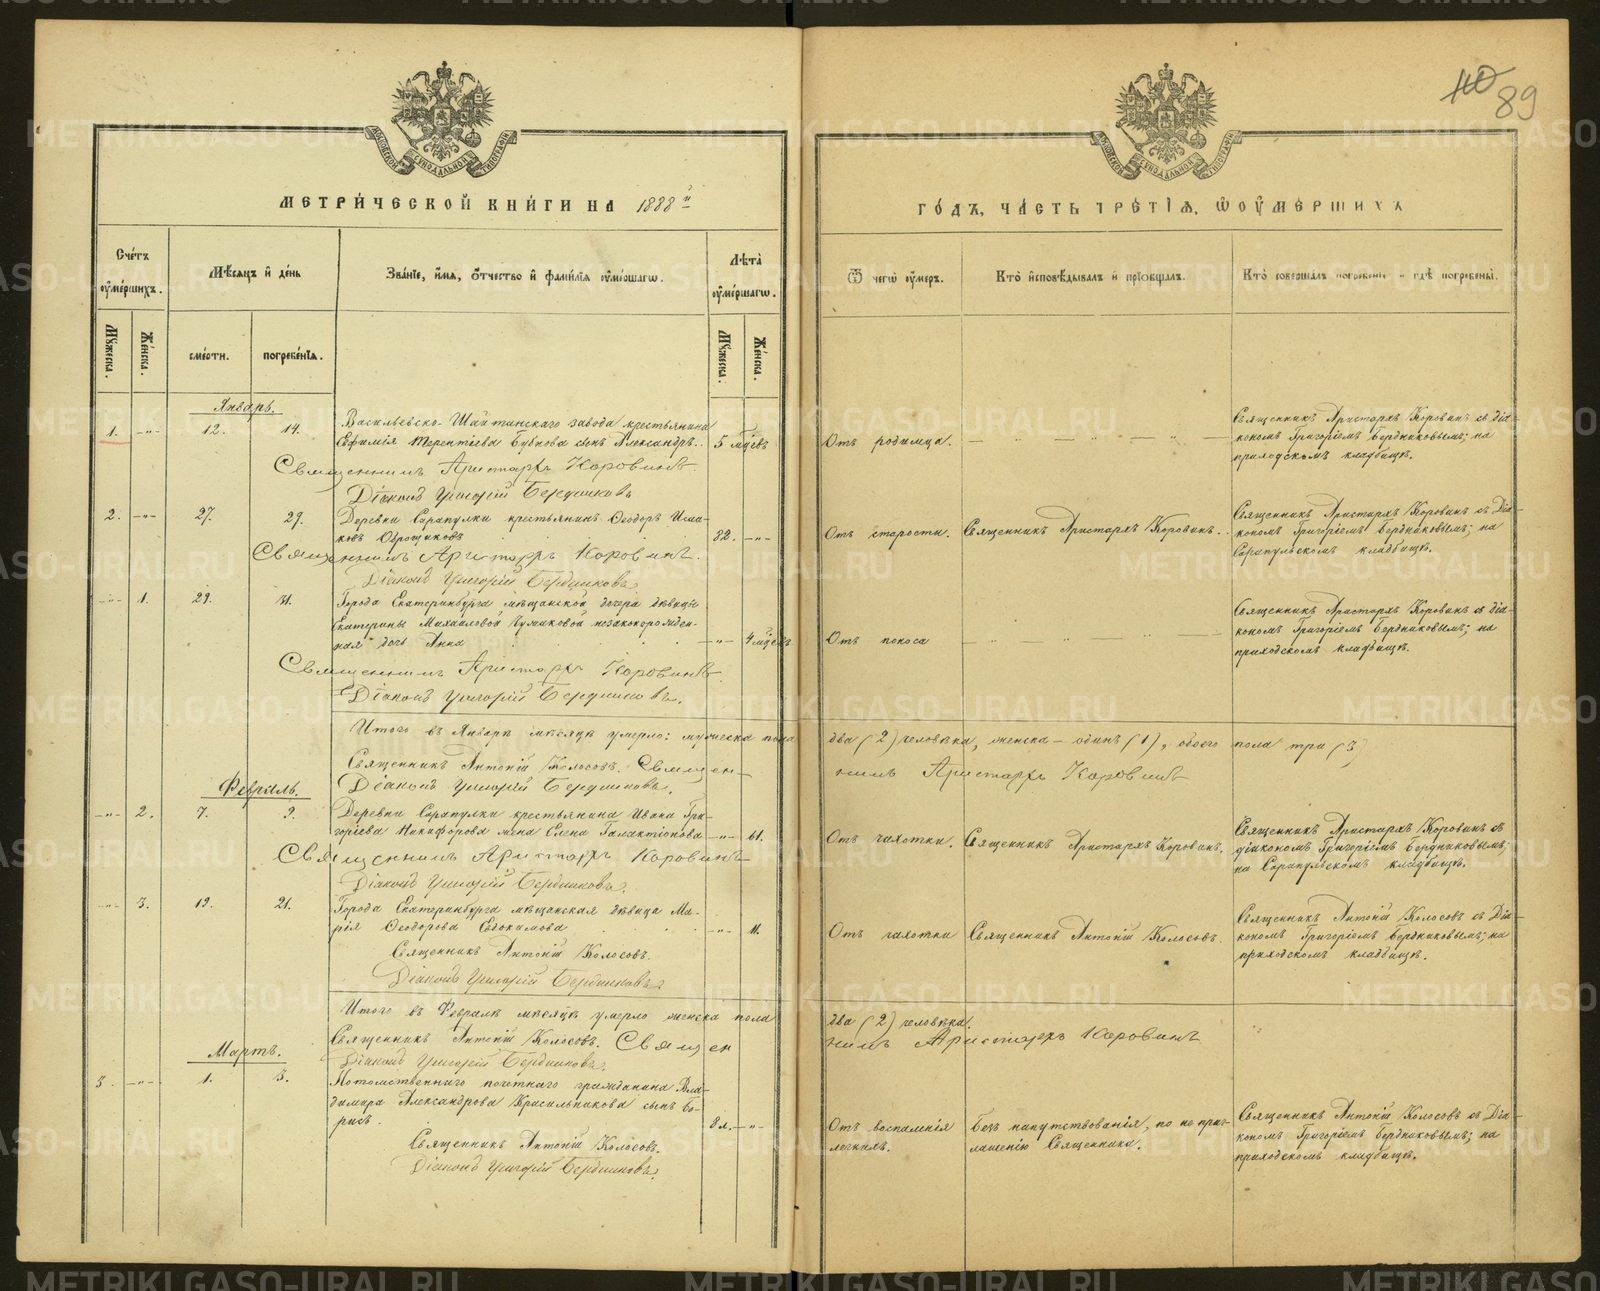 110 89
МЕТРИ́ЧЕСКОЙ КНИ́ГИ НА 1888й
ГО́ДЪ, ЧА́СТЬ ТРЕ́ТІѦ, Ѡ ОУМЕ́РШИХЪ
Сче́тъ оумершихъ.
Мѣсяцъ и день
Званіе, имя, отчество и фамилія оумершагѡ.
Лѣта оумершагѡ.
Ѿ чегѡ оумеръ.
Кто исповѣдывалъ и пріобщалъ.
Кто совершалъ погребеніе и гдѣ погребены.
Мужеска.
Женска.
смерти.
погребенія.
Мужеска.
Женска.
Январь.
1. -"- 12. 14. Васильевско-Шайтанскаго завода крестьянина
Ефимія Терентіева Бубнова сынъ Александръ. 5 мцевъ
Отъ родимца.
Священникъ Аристархъ Коровинъ съ діа-
кономъ Григоріемъ Бердниковымъ; на
приходскомъ кладбищѣ.
Священникъ Аристархъ Коровинъ.
Діаконъ Григорій Бердниковъ
2. -"- 27. 29. Деревни Сарапулки крестьянинъ Ѳеодоръ Исаа-
ковъ Оброщиковъ 82. -"-
Отъ старости. Священникъ Аристархъ Коровинъ.
Священникъ Аристархъ Коровинъ съ Діа-
кономъ Григоріемъ Бердниковымъ; на
Сарапульскомъ кладбищѣ.
Священникъ Аристархъ Коровинъ.
Діаконъ Григорій Бердниковъ
-"- 1. 29. 31. Города Екатеринбурга мѣщанской дочери дѣвицы
Екатерины Михаиловой незаконорожден-
ная дочь Анна -"- 4 мцевъ
Отъ поноса
Священникъ Аристархъ Коровинъ съ діа-
кономъ Григоріемъ Бердниковымъ; на
приходскомъ кладбищѣ.
Священникъ Аристархъ Коровинъ
Діаконъ Григорій Бердниковъ.
Итого въ Январѣ мѣсяцѣ умерло: мужеска пола два (2) человѣка, женска – одинъ (1), обоего пола три (3)
Священникъ Антоній Колосовъ. Священникъ Аристархъ Коровинъ
Діаконъ Григорій Бердниковъ.
Февраль.
-"- 2. 7. 9. Деревни Сарапулки крестьянина Ивана Гри-
горіева Никифорова жена Елена Галактіонова -"- 61.
Отъ чахотки. Священникъ Аристархъ Коровинъ.
Священникъ Аристархъ Коровинъ съ
діакономъ Григоріемъ Бердниковымъ;
на Сарапульскомъ кладбищѣ.
Священникъ Аристархъ Коровинъ
Діаконъ Григорій Бердниковъ.
-"- 3. 19. 21. Города Екатеринбурга мѣщанская дѣвица Ма-
рія Ѳеодорова Евдокимова -"- 11.
Отъ чахотки Священникъ Антоній Колосовъ.
Священникъ Антоній Колосовъ съ Діа-
кономъ Григоріемъ Бердниковымъ; на
приходскомъ кладбищѣ.
Священникъ Антоній Колосовъ.
Діаконъ Григорій Бердниковъ
Итого въ Февралѣ мѣсяцѣ умерло женска пола два (2) человѣка.
Священникъ Антоній Колосовъ. Священникъ Аристархъ Коровинъ
Діаконъ Григорій Бердниковъ.
Мартъ.
3. -"- 1. 3. Потомственнаго почетнаго гражданина Вла-
диміра Александрова Красильникова сынъ Бо-
рисъ. 8 л. -"-
Отъ воспаленія
легкихъ.
Безъ напутствованія, по не приг-
лашенію Священника.
Священникъ Антоній Колосовъ съ Діа-
кономъ Григоріемъ Бердниковымъ; на
приходскомъ кладбищѣ.
Священникъ Антоній Колосовъ.
Діаконъ Григорій Бердниковъ
METRIKI.GASO-URAL.RU